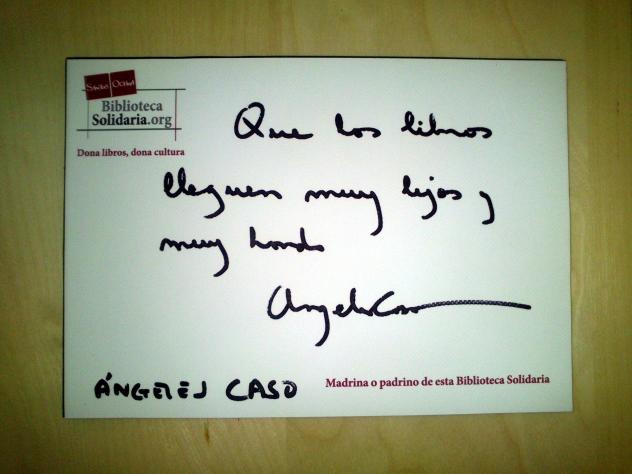 Biblioteca
Solidaria.org
Dona libros, dona cultura
Que los libros
lleguen muy lejos y
muy hondo
Ángeles Caso
ÁNGELES CASO
Madrina o padrino de esta Biblioteca Solidaria